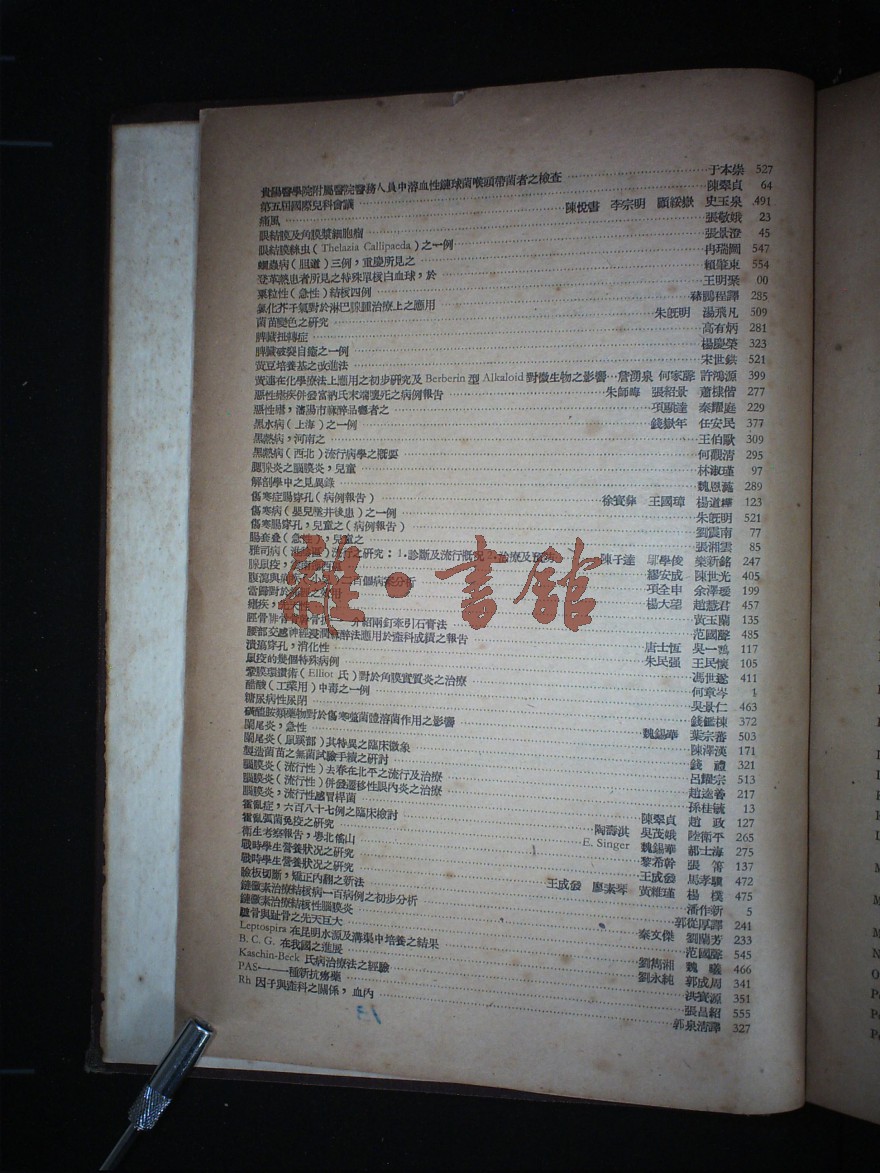 貴陽醫學院附屬醫院醫務人員中溶血性鏈球菌喉頭帶菌者之檢查 于本崇 527
第五屆國際兒科會議 陳翠貞 64
痛風 陳悅書 李宗明 顧綏嶽 史玉泉 491
眼結膜及角膜漿細胞瘤 張敬娥 23
眼結膜絲虫（Thelazia Callipaeda）之一例 張景澄 45
蛔蟲病（胆道）三例，重慶所見之 冉瑞圖 547
登革熱患者所見之特殊單核白血球，於 賴肇東 554
粟粒性（急性）結核四例 王明琛 00
氯化芥子氣對於淋巴腺腫治療上之應用 豬鵬程譯 285
菌苗變色之研究 朱旣明 湯飛凡 509
脾臟扭轉症 高有炳 281
脾臟破裂自癒之一例 楊慶榮 323
黃豆培養基之改進法 宋世鈜 521
黃連在化學療法上應用之初步研究及 Berberin 型 Alkaloid 對微生物之影響 詹湧泉 何家驊 許鴻源 399
惡性瘧疾併發富訥氏末端壞死之病例報告 朱師晦 張紹景 蕭棣偕 277
惡性瘧，瀋陽市麻醉品癮者之 項顯達 秦耀庭 229
黑水病（上海）之一例 錢嶽年 任安民 377
黑熱病，河南之 王伯歐 309
黑熱病（西北）流行病學之概要 何觀清 295
腮腺炎之腦膜炎，兒童 林淑瑾 97
解剖學中之見異錄 魏恩蕅 289
傷寒症腸穿孔（病例報告） 徐寶彝 王國璋 楊道繹 123
傷寒病（嬰兒墜井後患）之一例 朱旣明 521
傷寒腸穿孔，兒童之（病例報告） 劉震南 77
腸套疊（急性），兒童之 張湘雲 85
雅司病 流行之研究：1.診斷及流行概況 2.治療及預防 陳子達 鄔學俊 榮新銘 247
腺鼠疫， 繆安成 陳世光 405
腹瀉與痢疾（小兒）二百個病案分析 項全申 余澤璦 199
瘧疾，先天性 楊大望 趙慧君 457
脛骨 介紹兩釘牽引石膏法 黃玉蘭 135
腰部交感神經浸潤麻醉法應用於產科成績之報告 范國聲 485
潰瘍穿孔，消化性 唐士恆 吳一鶚 117
鼠疫的幾個特殊病例 朱民强 王民懷 105
鞏膜環鑽術（Elliot 氏）對於角膜實質炎之治療 馮世遂 411
醋酸（工業用）中毒之一例 何章岑 1
糖尿病性尿閉 吳景仁 463
磺醯胺類藥物對於傷寒菌菌體溶菌作用之影響 錢鉅楝 372
闌尾炎，急性 魏錫華 葉宗蕃 503
闌尾炎（鼠蹊部）其特異之臨床徵象 陳澤漢 171
製造菌苗之無菌試驗手續之研討 錢 禮 321
腦膜炎（流行性）去春在北平之流行及治療 呂耀宗 513
腦膜炎（流行性）併發遷移性眼內炎之治療 趙達善 217
腦膜炎，流行性感冒桿菌 孫桂毓 13
霍亂症，六百八十七例之臨床檢討 陳翠貞 趙 政 127
霍亂弧菌免疫之研究 陶壽淇 吳茂娥 陸衛平 265
衛生考察報告，粵北傜山 E. Singer 魏錫華 郝士海 275
戰時學生營養狀况之研究 黎希幹 張 箐 137
戰時學生營養狀况之研究 王成發 馬孝驥 472
瞼板切斷，矯正內翻之新法 王成發 廖素琴 黃維瑾 楊 樸 475
鏈黴素治療結核病一百病例之初步分析 潘作新 5
鏈黴素治療結核性腦膜炎 郭從厚譯 241
髗骨與趾骨之先天巨大 秦文傑 劉蘭芳 233
Leptospira 在昆明水源及溝渠中培養之結果 范國聲 545
B. C. G. 在我國之進展 劉雋湘 魏 曦 466
Kaschin-Beck 氏病治療法之經驗 劉永純 郭成周 341
PAS——一種新抗癆藥 洪寶源 351
Rh 因子與產科之關係，血內 張昌紹 555
郭泉清譯 327
13
雜·書館